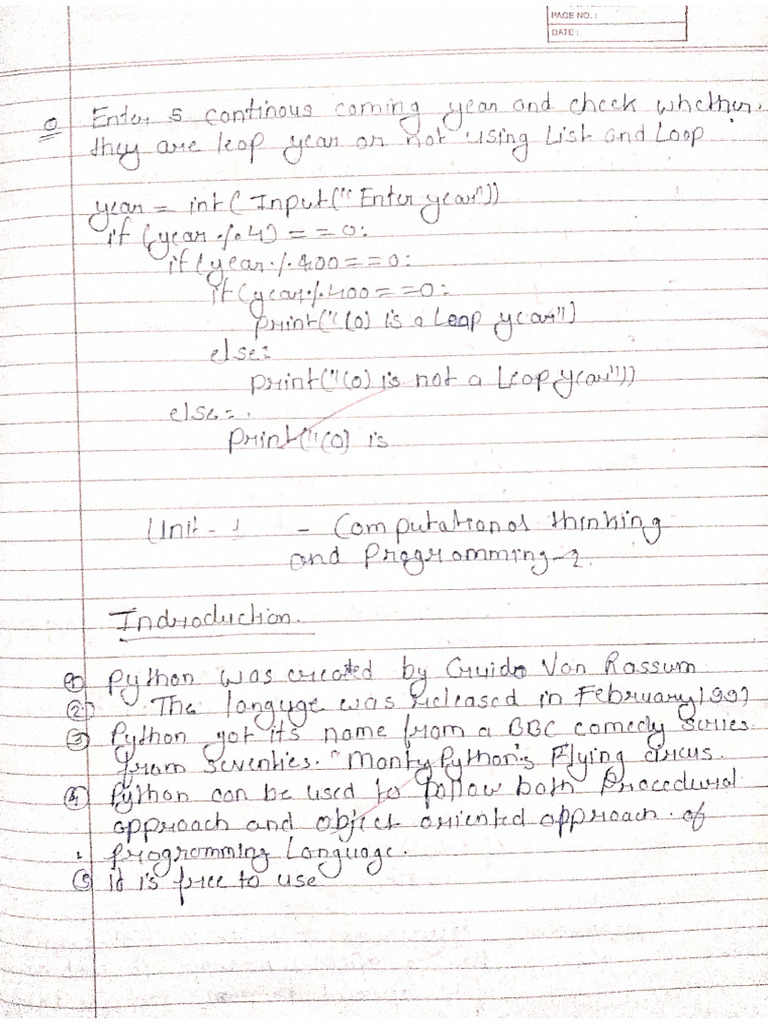 PAGE NO. :
DATE :
Q Enter 5 continous coming year and check whether
they are leap year or not using List and Loop
year = int( Input("Enter year"))
if (year % 4) = = 0:
if (year % 400 = = 0:
if (year % 400 = = 0:
print("(0) is a Leap year")
else:
print("(0) is not a Leap year"))
else = .
Print("(0) is
Unit - 1 - Computational thinking
and Programming-2.
Indroduction.
① Python was created by Guido Van Rassum
② The languge was released in February 1991
③ Python got its name from a BBC comedy series
from seventies. "Monty Python's Flying circus.
④ Python can be used to follow both Procedural
approach and object oriented approach of
programming Language.
⑤ it is free to use